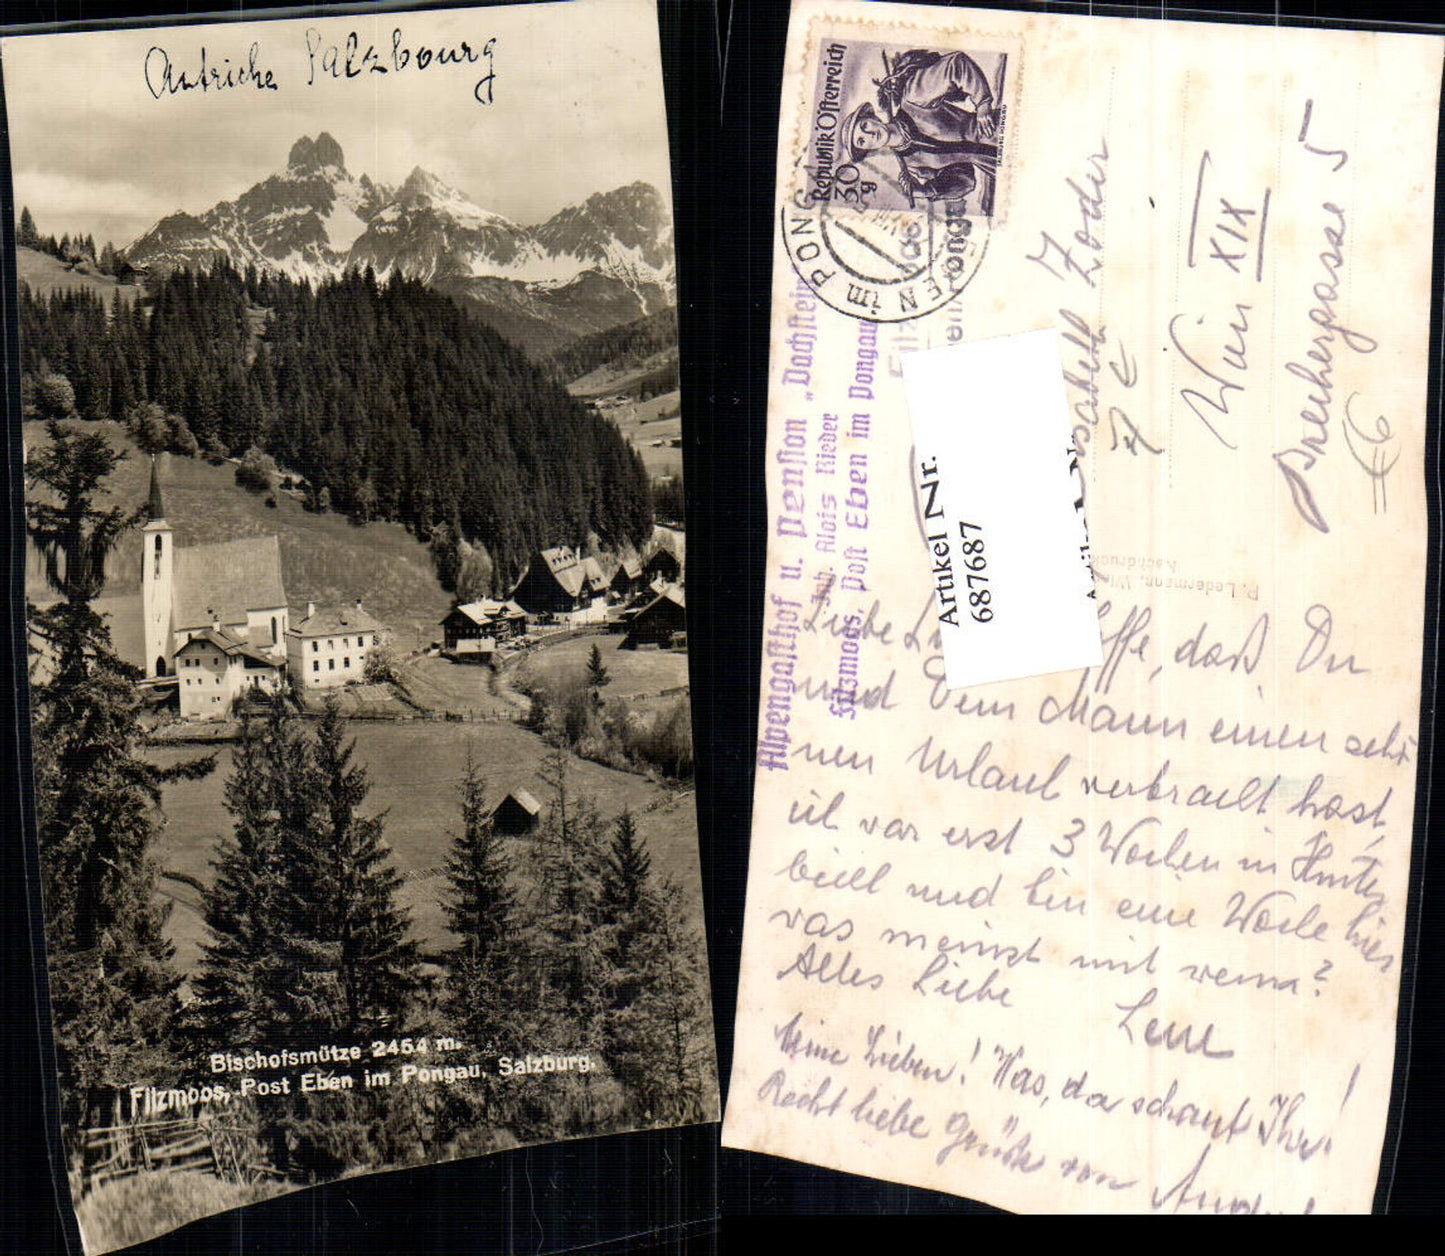 Autriche Salzbourg
Bischofsmütze 2454 m.
Filzmoos, Post Eben im Pongau, Salzburg.
Republik Österreich
30
g
EN im PONG
Alpengasthof u. Pension „Dachstein
Inh. Alois Rieder
Filzmoos, Post Eben im Pongau
Artikel Nr.
687687
Zoder
Wien XIX
gasse 5
P. Ledermann, Wien
Nachdruck
Liebe L ffe, daß Du
und Dein Mann einen schö
nen Urlaub verbracht hast,
ich war erst 3 Wochen in Hinter
bichl und bin eine Woche hier
was meinst mit wem?
Alles Liebe
Lene
Meine Lieben! Was, da schaut Ihr!
Recht liebe Grüße von